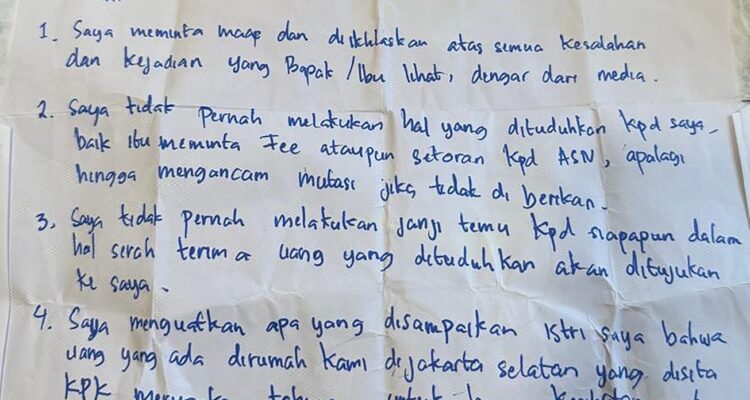 1. Saya meminta maap dan diikhlaskan atas semua kesalahan
dan kejadian yang Bapak/Ibu lihat, dengar dari media.
2. Saya tidak Pernah melakukan hal yang dituduhkan kpd saya,
baik itu meminta Fee ataupun setoran kpd ASN, apalagi
hingga mengancam mutasi jika tidak di berikan.
3. Saya tidak pernah melakukan janji temu kpd siapapun dalam
hal serah terima uang yang dituduhkan akan ditujukan
ke saya.
4. Saya menguatkan apa yang disampaikan istri saya bahwa
uang yang ada dirumah kami dijakarta selatan yang disita
KPK